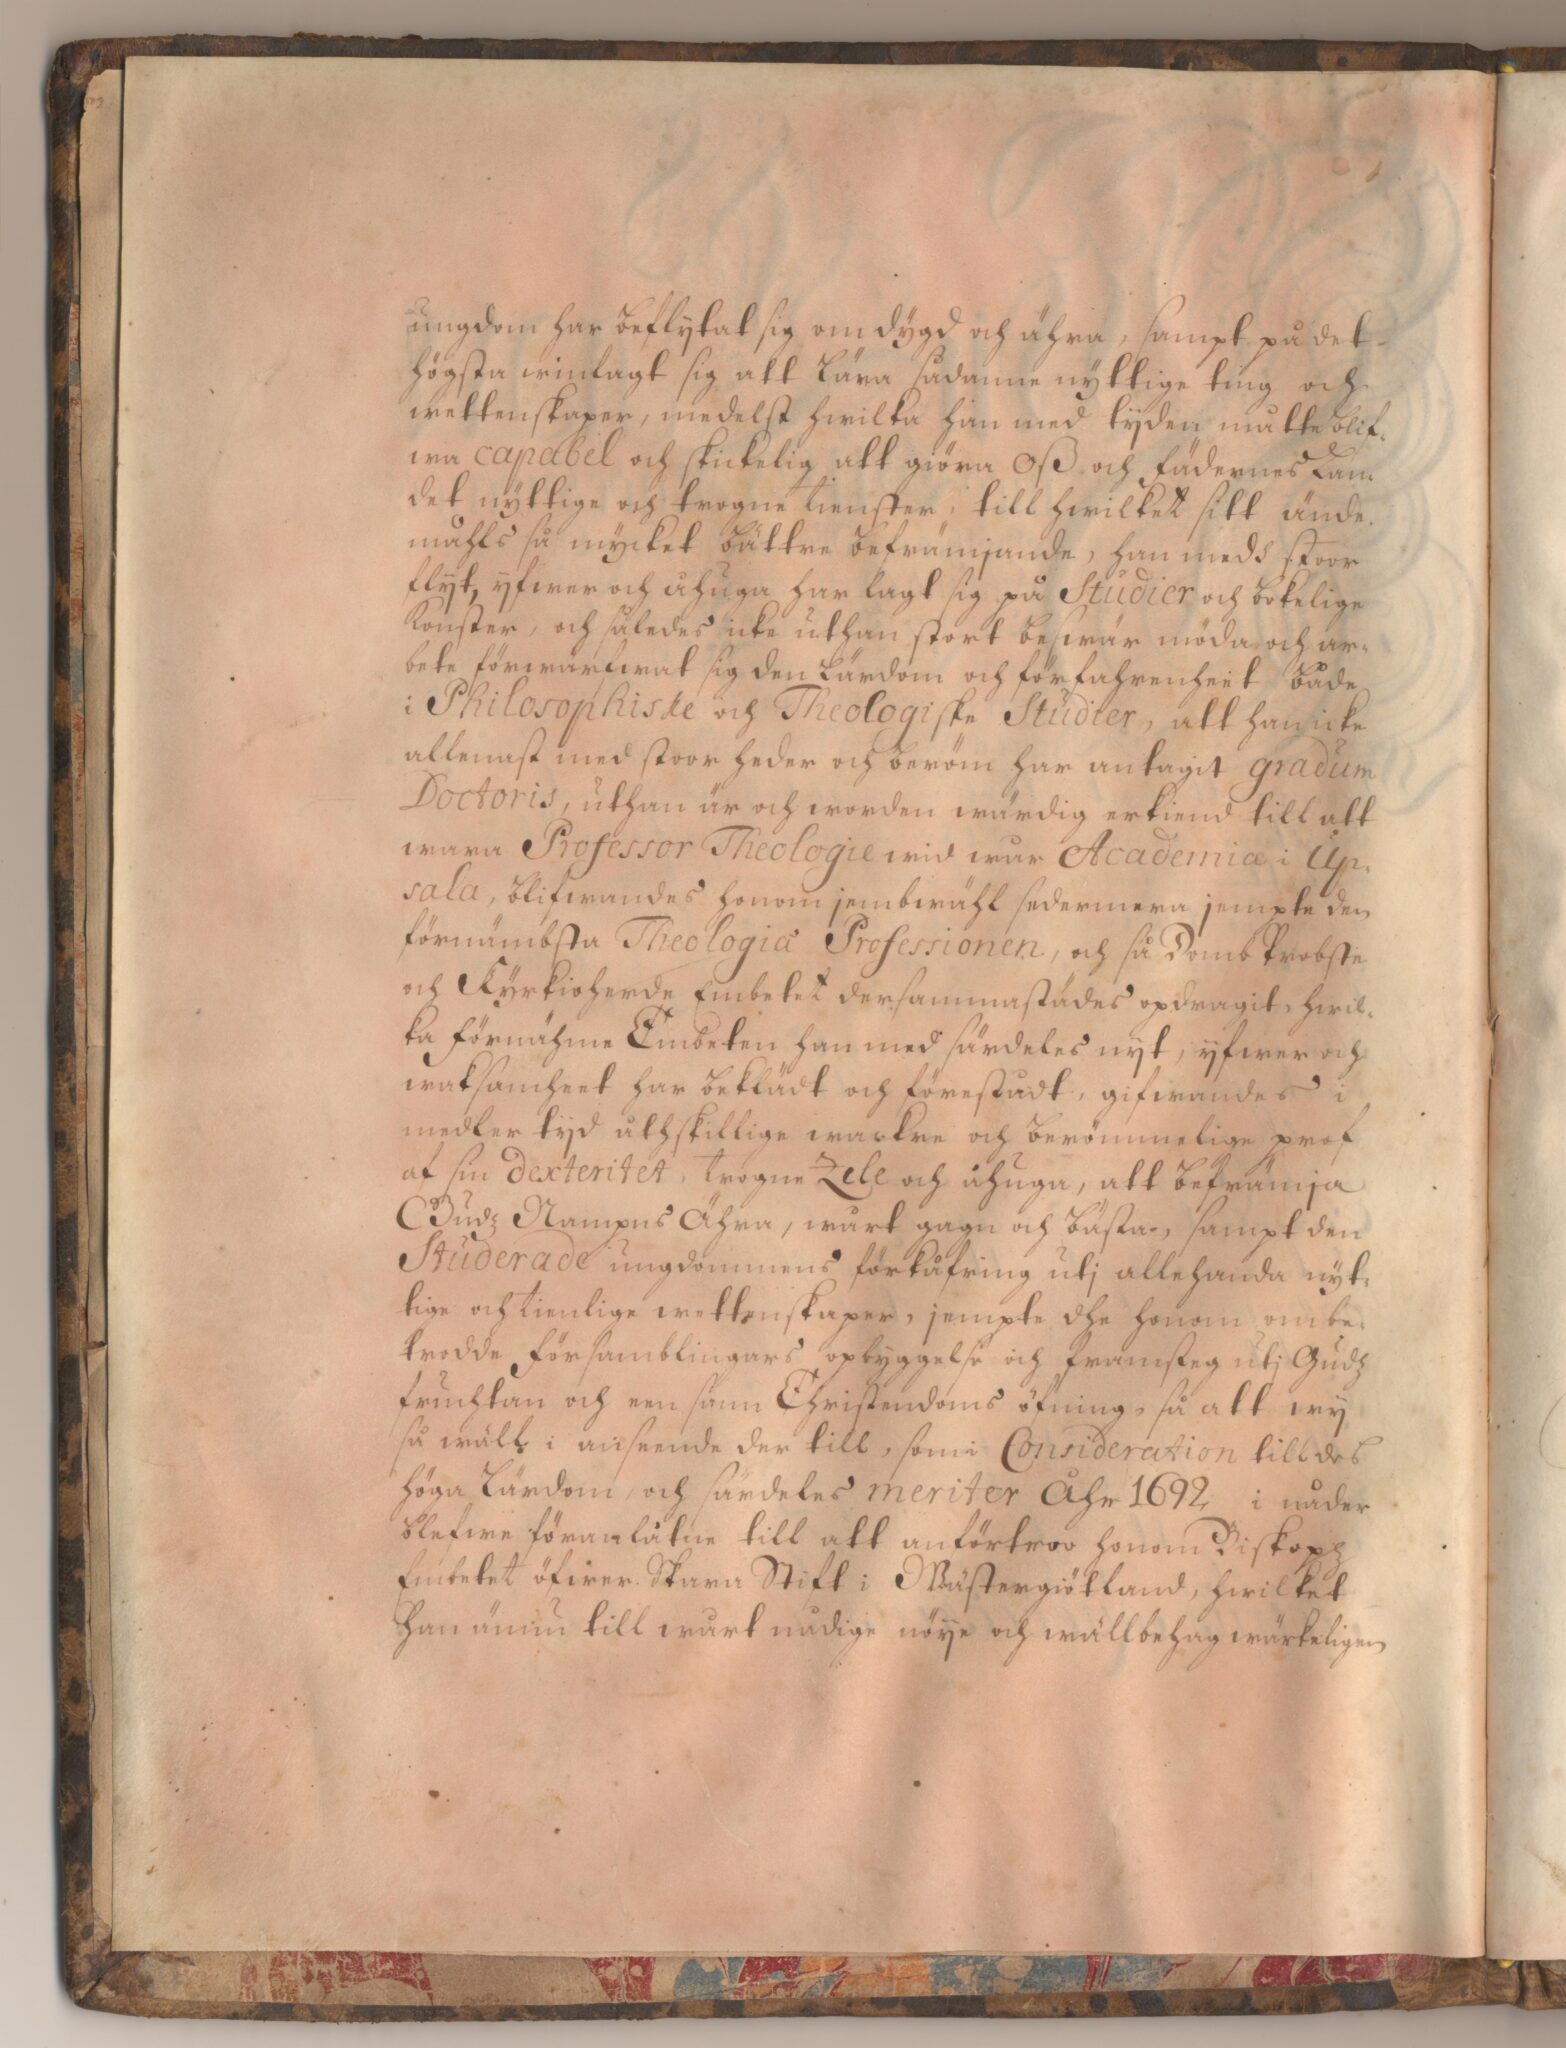 ungdom har beflytat sig om dÿgd och ähra, sampt på det
högsta winlagt sig att Lära sådanne nÿttige ting och
wettenskaper, medelst hwilka han med tÿden måtte blif-
wa capabel och skickelig att giöra Oß och fädernes Lan-
det nÿttige och trogne tienster, till hwilket sitt ände-
mahls så mÿcket bättre befrämjande, han meds stoor
flyt, yfwer och åhuga har lagt sig på Studier och bokelige
Konster, och således icke uthan stort beswär möda och ar-
bete förwärfwat sig den Lärdom och förfahrenheet både
i Philosophiske och Theologiske Studier, att han icke
allenast med stoor heder och beröm har antagit gradum
Doctoris, uthan är och worden wärdig erkiend till att
wara Professor Theologiæ wid wår Academia i Up-
sala, blifwandes honom jembwähl sedermera jempte den
förnämbsta Theologiæ Professionen, och så Domb Probste
och Kyrkioherde Embetet dersammastädes opdragit, hwil-
ka förnähme Embeten han med särdeles nyt, yfwer och
waksamheet har beklädt och förestådt, gifwandes i
medler tÿd åthskillige wackre och berömmelige prof
af sin dexteritet, trogne Zele och åhuga, att befrämja
Gudz Nampns Ähra, wårt gagn och bästa, sampt den
Studerade ungdommens förkåfring utj allehanda nyt-
tige och tienlige wettenskaper, jempte dhe honom ombe-
trodde församblingars opbyggelse och framsteg utj Gudz
fruchtan och een sann Christendoms öfning, så att wy
så wäll i anseende der till, som i Consideration till des
höga Lärdom, och särdeles meriter Åhr 1692 i nåder
blefwe föranlåtne till att anförtroo honom Biskopz
Embetet öfwer Skara Stift i Wästergiötland, hwilket
han ännu till wårt nådige nöye och wällbehag wärkeligen